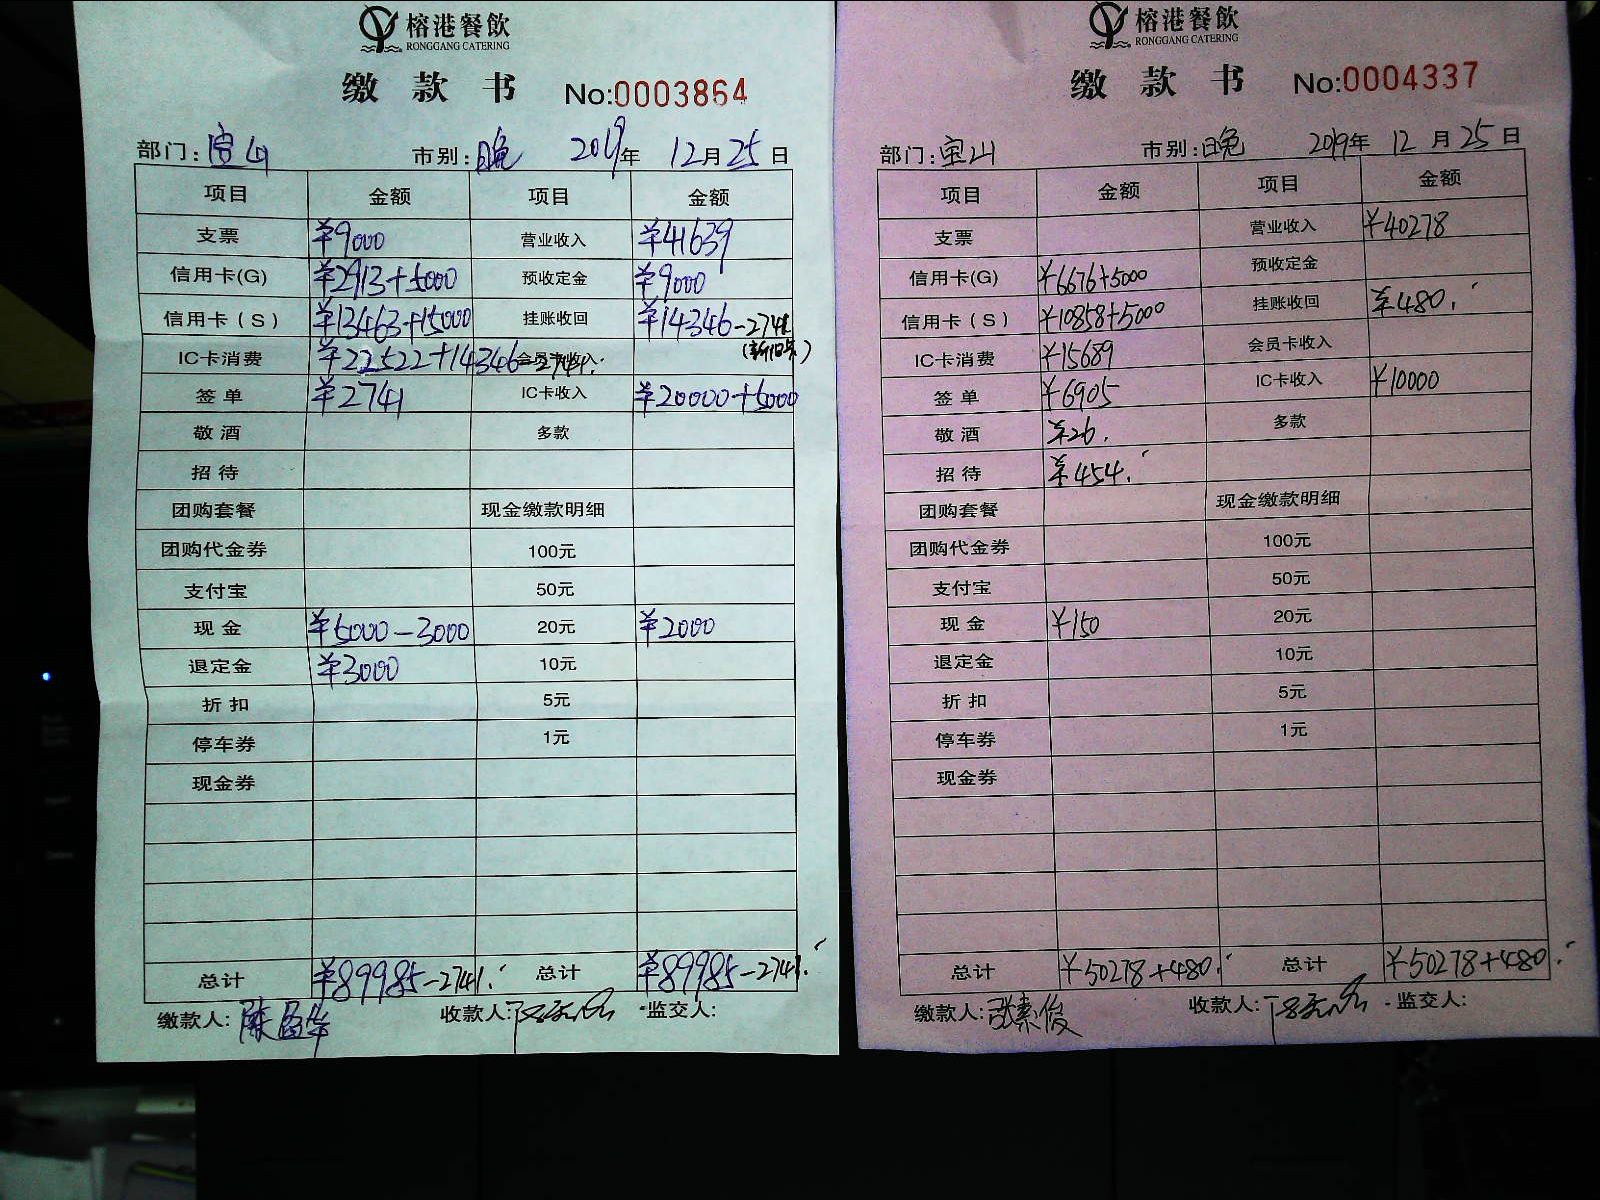 榕港餐飲
RONGGANG CATERING
缴款书 No:0003864
部门:宝山 市别:晚 2019年 12月25日
项目 金额 项目 金额
支票 ¥9000 营业收入 ¥41639
信用卡(G) ¥2913+5000 预收定金 ¥9000
信用卡(S) ¥13463+15000 挂账收回 ¥14346-2741
IC卡消费 ¥22522+14346-2741. 会员卡收入
签单 ¥2741 IC卡收入 ¥20000+5000
敬酒 多款
招待
团购套餐 现金缴款明细
团购代金券 100元
支付宝 50元
现金 ¥5000-3000 20元 ¥2000
退定金 ¥3000 10元
折扣 5元
停车券 1元
现金券
总计 ¥89985-2741. 总计 ¥89985-2741.
缴款人: 收款人: 监交人:
榕港餐飲
RONGGANG CATERING
缴款书 No:0004337
部门:宝山 市别:晚 2019年 12月25日
项目 金额 项目 金额
支票 营业收入 ¥40278
信用卡(G) ¥6676+5000 预收定金
信用卡(S) ¥10858+5000 挂账收回 ¥480.
IC卡消费 ¥15689 会员卡收入
签单 ¥6905 IC卡收入 ¥10000
敬酒 ¥26. 多款
招待 ¥454.
团购套餐 现金缴款明细
团购代金券 100元
支付宝 50元
现金 ¥150 20元
退定金 10元
折扣 5元
停车券 1元
现金券
总计 ¥50278+480. 总计 ¥50278+480.
缴款人:张素俊 收款人: 监交人: